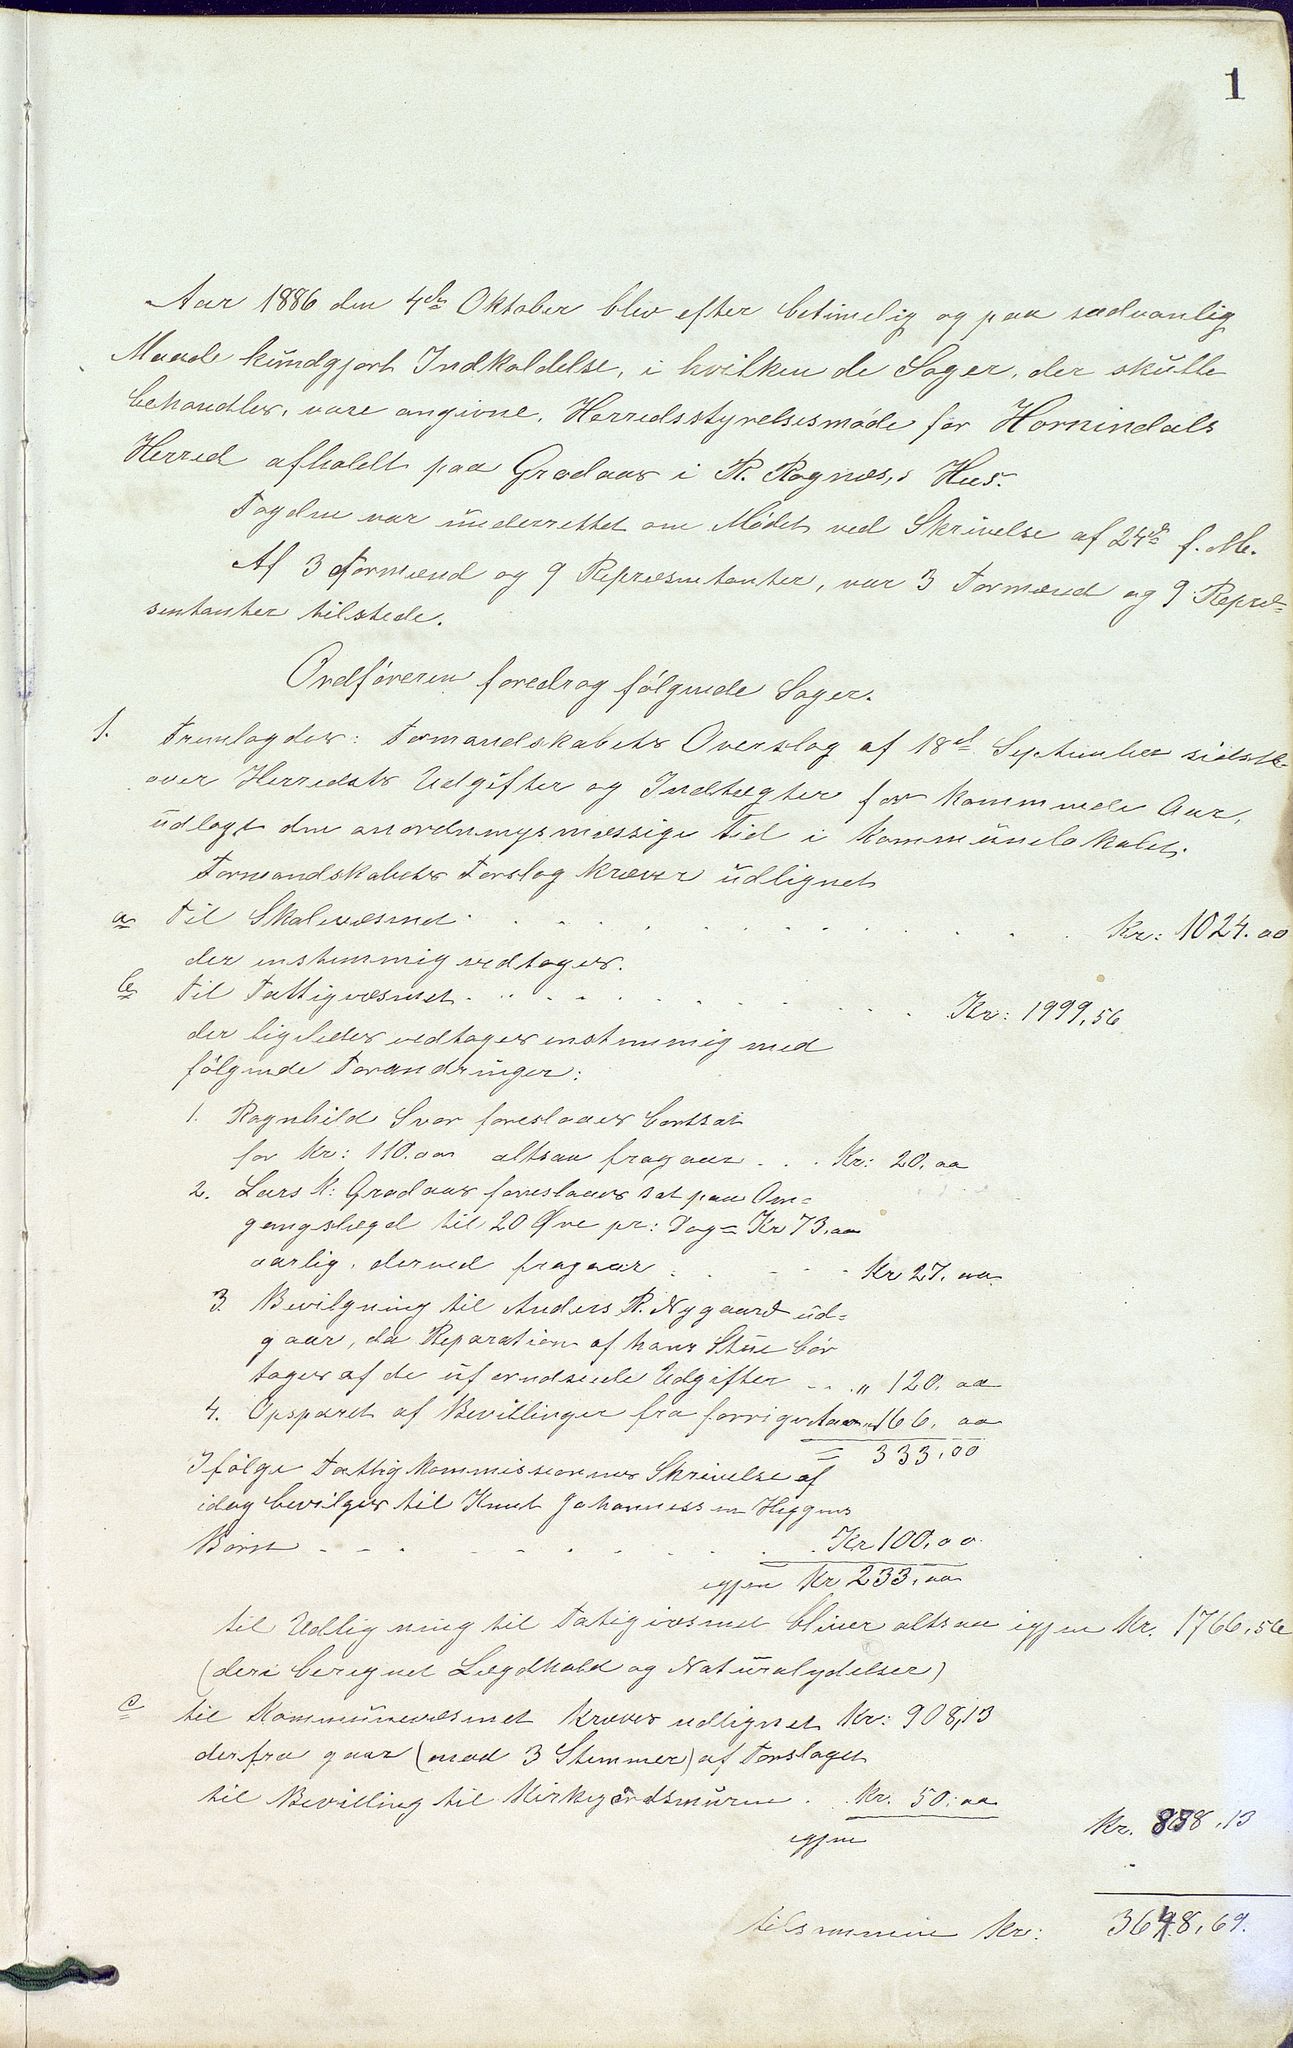 1
Aar 1886 den 4de Oktober blev efter betimelig og paa sædvanlig
Maade kundgjort Indkaldelse, i hvilken de Sager, der skulle
behandles, vare angivne, Herredsstyrelsesmøde for Hornindals
Herred afholdt paa Grodaas i R. Ragnæs,s Hus.
Fogden var underrettet om Mødet ved Skrivelse af 24de f. M.
Af 3 Formænd og 9 Repræsentanter, var 3 Formænd og 9 Repræ-
sentanter tilstede.
Ordføreren foredrog følgende Sager.
1. Fremlagdes: Formandskabets Overslag af 18de September sidstl.
over Herredets Udgifter og Indtægter for kommende Aar,
udlagt den anordningsmæssige Tid i Kommunelokalet.
Formandskabets Forslag kræver udlignet
a Til Skolevæsenet . . . . . . . . . . Kr: 1024.00
der enstemmig vedtages.
b Til Fattigvæsenet . . . . . . . . . . Kr: 1999,56
der ligeledes vedtages enstemmig med
følgende Forandringer:
1. Ragnhild Svor foreslaaes bortsat
for Kr: 110.00 altsaa fragaar . . . Kr: 20.00
2. Lars K: Grodaas foreslaaes sat paa Om-
gangslægd til 20 Øre pr: Dag = Kr 73.00
aarlig, derved fragaar . . . . Kr 27.00
3. Bevilgning til Anders R. Nygaard ud-
gaar, da Reparation af hans Stue bør
tages af de uforudseede Udgifter . . . " 120.00
4. Opsparet af Bevillinger fra forrige Aar " 166.00
= 333,00
Ifølge Fattigkommissionens Skrivelse af
idag bevilges til Knut Johannessen Heggens
Børn . . . . . . . . . . Kr 100,00.
igjen Kr 233,00
til Udligning til Fatigvæsenet bliver altsaa igjen Kr. 1766,56
(deri beregnet Lægdhold og Naturalydelser)
c til Kommunevæsenet kræves udlignet Kr: 908,13
derfra gaar (mod 3 Stemmer) af Forslaget
til Bevilling til Kirkegårdsmuren . . Kr. 50.00
igjen Kr. 858,13
tilsammen Kr: 3648,69.